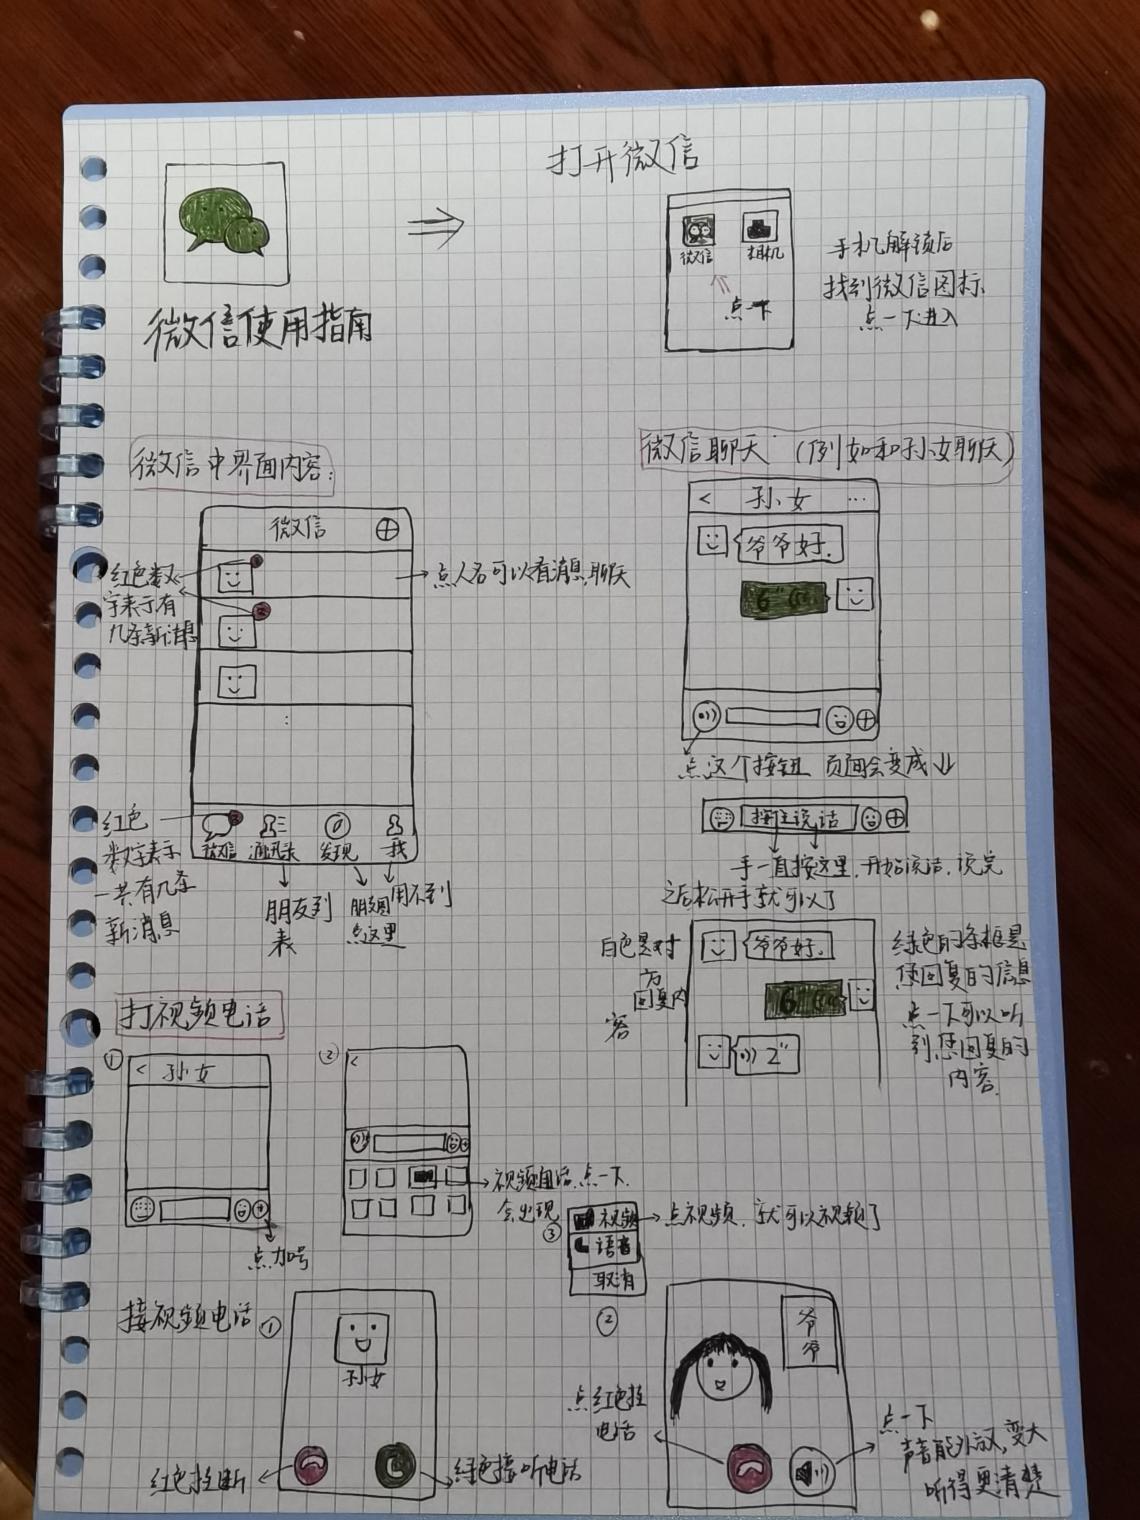 微信使用指南
打开微信
微信
相机
点一下
手机解锁后
找到微信图标
点一下进入
微信中界面内容:
微信
红色数
字表示有
几条新消息
点人名可以看消息,聊天
微信
通讯录
发现
我
红色
数字表示
一共有几条
新消息
朋友列
表
朋友圈
点这里
用不到
微信聊天 (例如和孙女聊天)
< 孙女 ...
爷爷好.
6"
点这个按钮 页面会变成
按住说话
手一直按这里,开始说话,说完
之后松开手就可以了
白色是对
方
回复内
容
爷爷好.
6"
2"
绿色的条框是
您回复的信息
点一下可以听
到您回复的
内容.
打视频电话
①
< 孙女
点加号
②
<
视频电话,点一下.
会出现
③
视频
语音
取消
点视频,就可以视频了
接视频电话 ①
孙女
红色挂断
绿色接听电话
②
爷
爷
点红色挂
电话
点一下
声音能外放,变大
听得更清楚